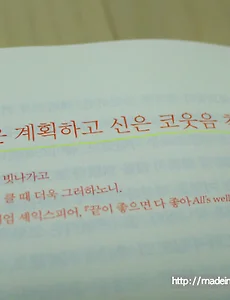 계획하고 신은 코웃음
빗나가고
클 때 더욱 그러하노니.
셰익스피어, 『끝이 좋으면 다 좋아All's well
http://madein